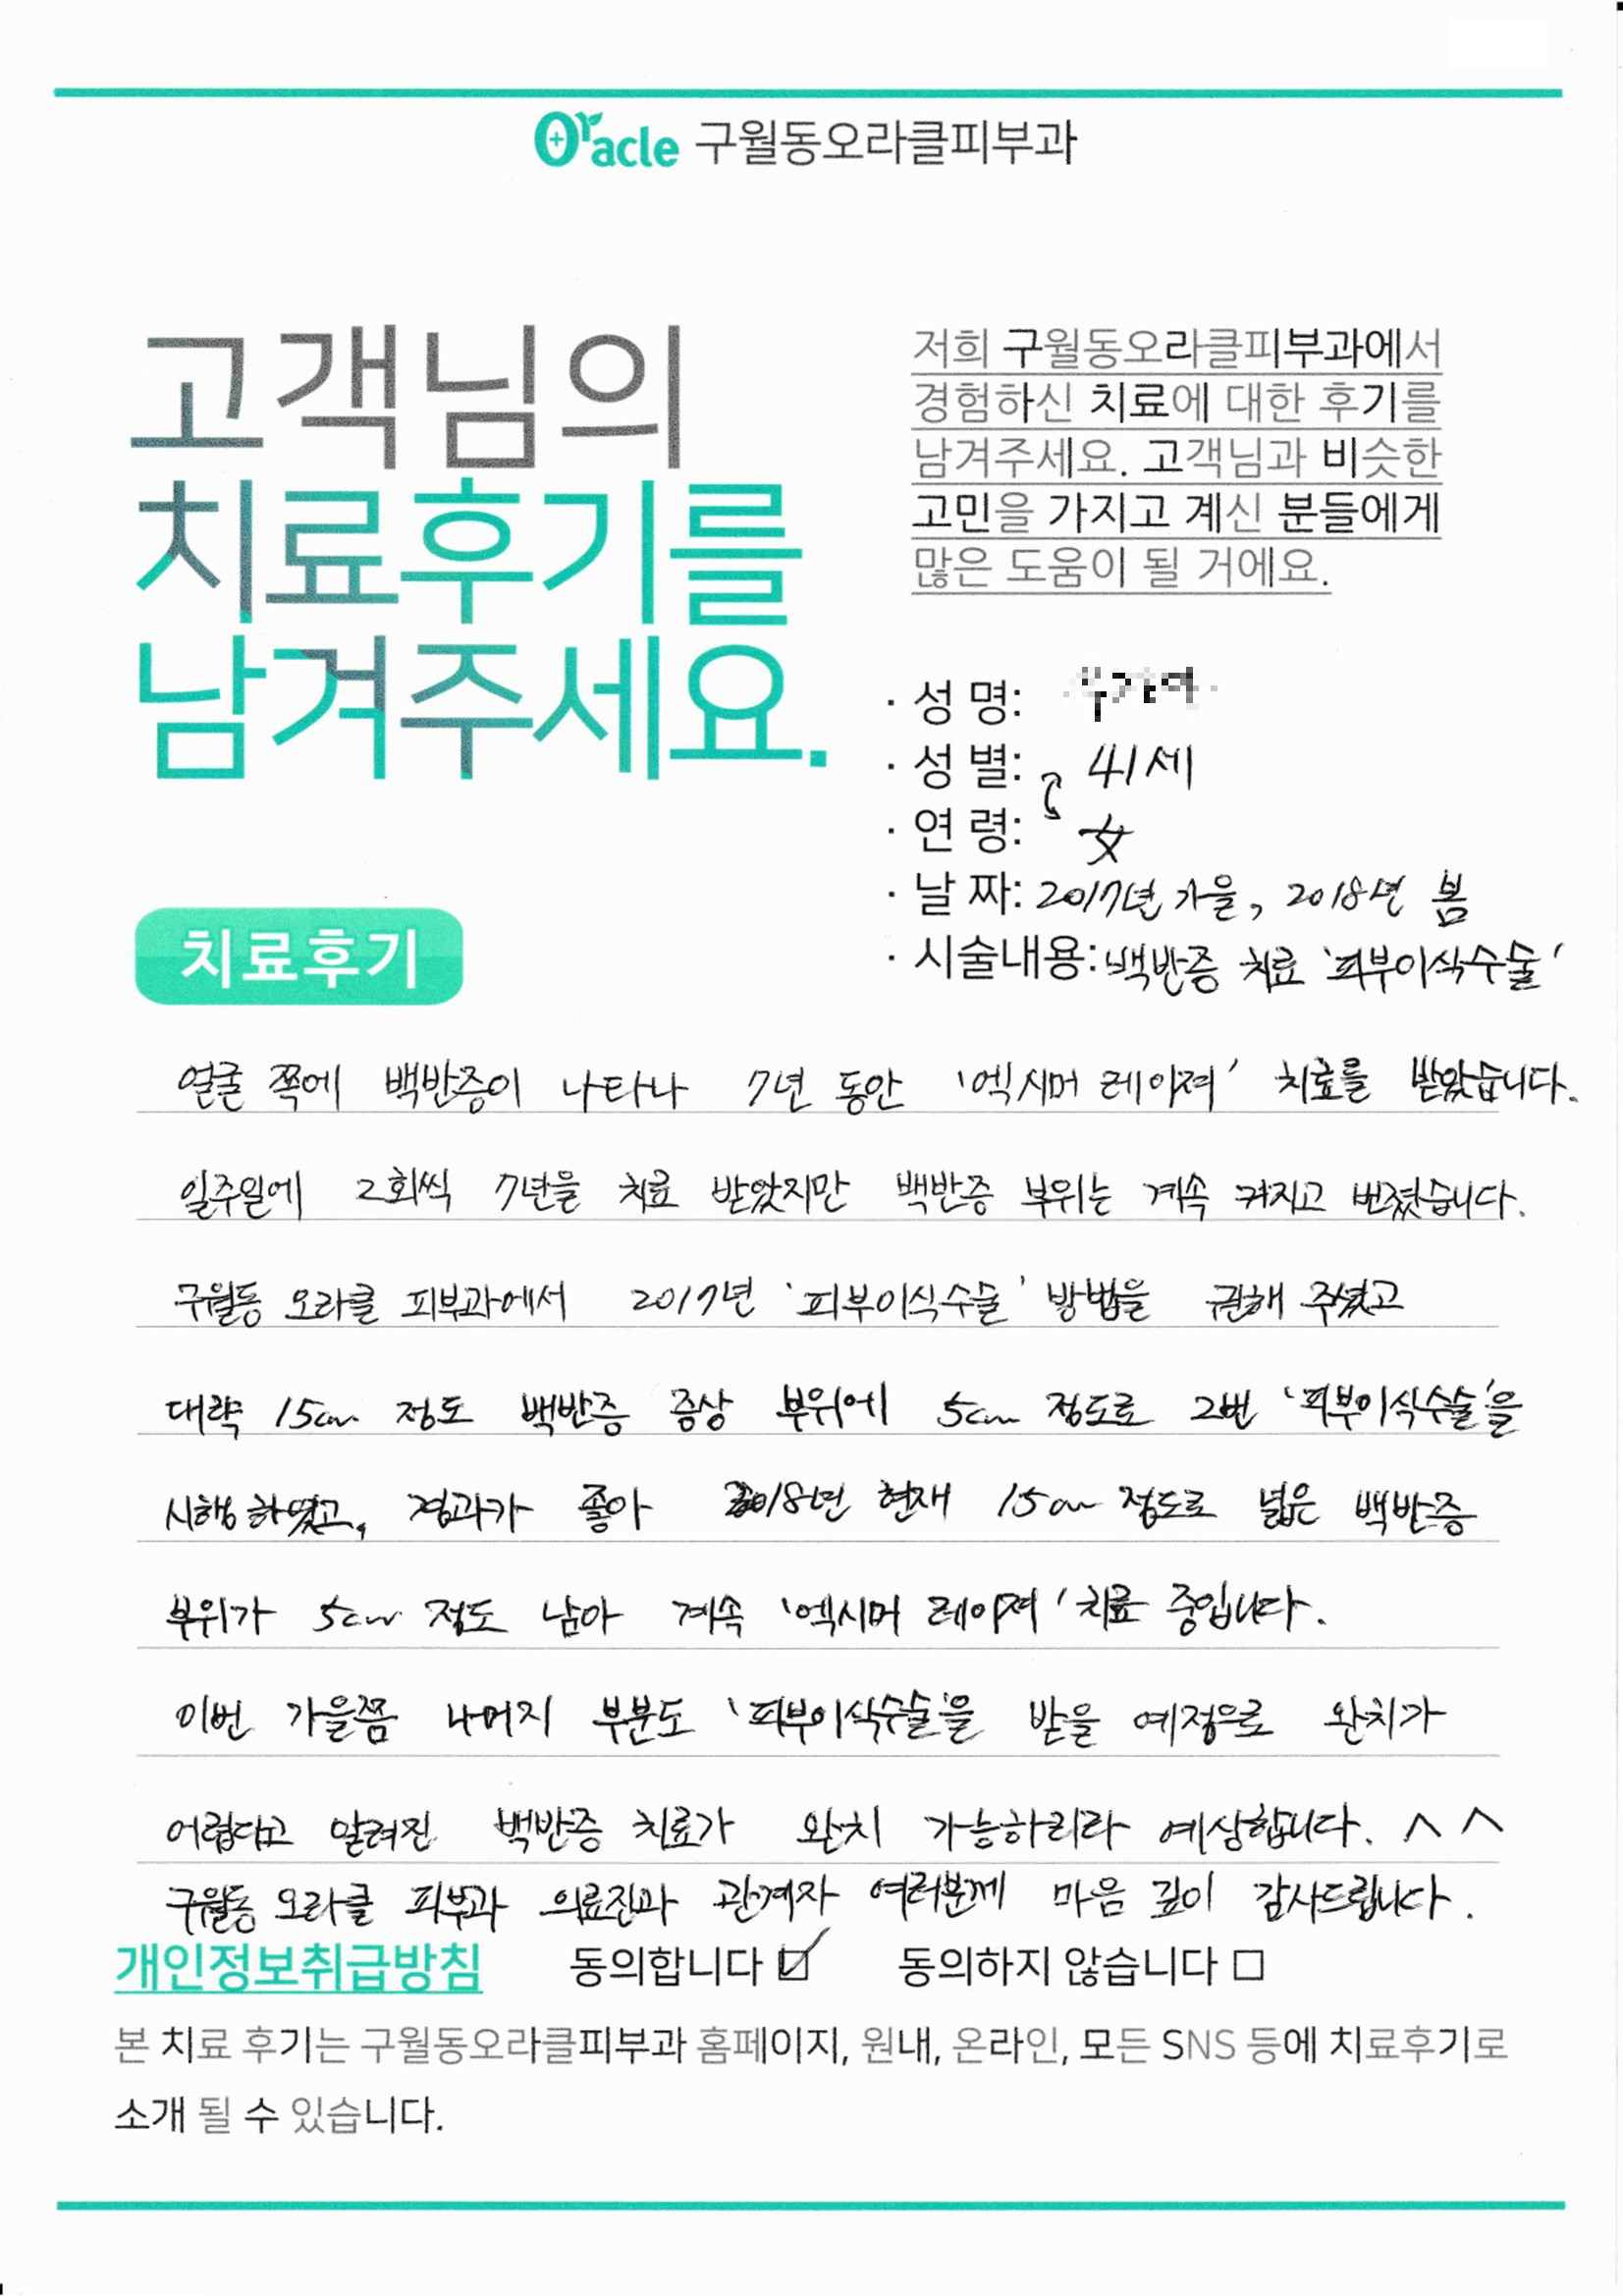 Oracle 구월동오라클피부과
고객님의
치료후기를
남겨주세요.
저희 구월동오라클피부과에서
경험하신 치료에 대한 후기를
남겨주세요. 고객님과 비슷한
고민을 가지고 계신 분들에게
많은 도움이 될 거에요.
· 성 명:
· 성 별: 41세
· 연 령: 女
· 날 짜: 2017년 가을, 2018년 봄
· 시술내용: 백반증 치료 '피부이식수술'
치료후기
얼굴 쪽에 백반증이 나타나 7년 동안 '엑시머 레이져' 치료를 받았습니다.
일주일에 2회씩 7년을 치료 받았지만 백반증 부위는 계속 커지고 번졌습니다.
구월동 오라클 피부과에서 2017년 '피부이식수술' 방법을 권해 주셨고
대략 15cm 정도 백반증 증상 부위에 5cm 정도로 2번 '피부이식수술'을
시행하였고, 경과가 좋아 2018년 현재 15cm 정도로 넓은 백반증
부위가 5cm 정도 남아 계속 '엑시머 레이져' 치료 중입니다.
이번 가을쯤 나머지 부분도 '피부이식수술'을 받을 예정으로 완치가
어렵다고 알려진 백반증 치료가 완치 가능하리라 예상합니다. ^ ^
구월동 오라클 피부과 의료진과 관계자 여러분께 마음 깊이 감사드립니다.
개인정보취급방침 동의합니다 ☑ 동의하지 않습니다 □
본 치료 후기는 구월동오라클피부과 홈페이지, 원내, 온라인, 모든 SNS 등에 치료후기로
소개 될 수 있습니다.